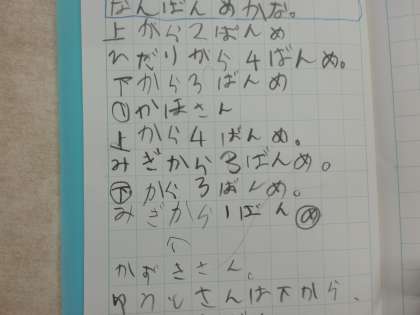 なんばんめかな。
上から2ばんめ
ひだりから4ばんめ。
下から3ばんめ
①かほさん
上から4ばんめ。
みぎから3ばんめ。
下から3ばんめ。
みぎから1ばんめ
かずささん。
さんは下から、